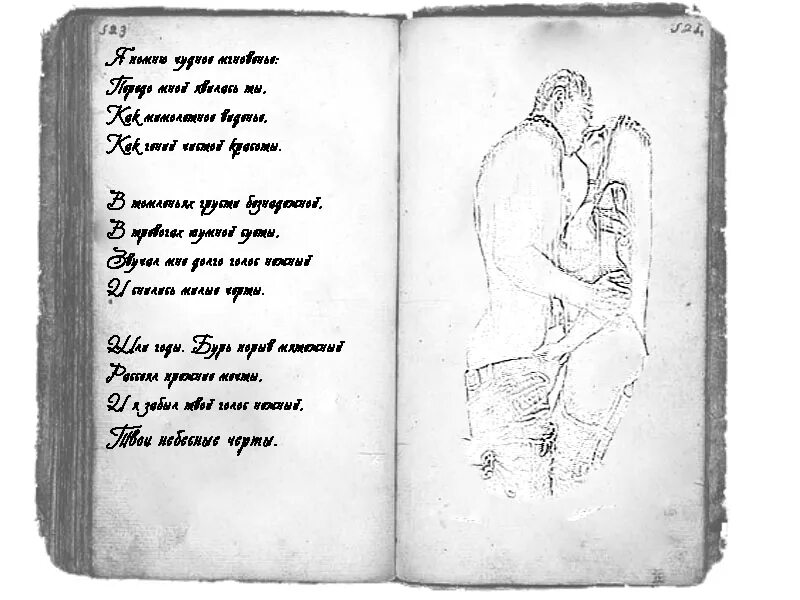 523
524
Я помню чудное мгновенье:
Передо мной явилась ты,
Как мимолетное виденье,
Как гений чистой красоты.

В томленьях грусти безнадежной,
В тревогах шумной суеты,
Звучал мне долго голос нежный
И снились милые черты.

Шли годы. Бурь порыв мятежный
Рассеял прежние мечты,
И я забыл твой голос нежный,
Твои небесные черты.